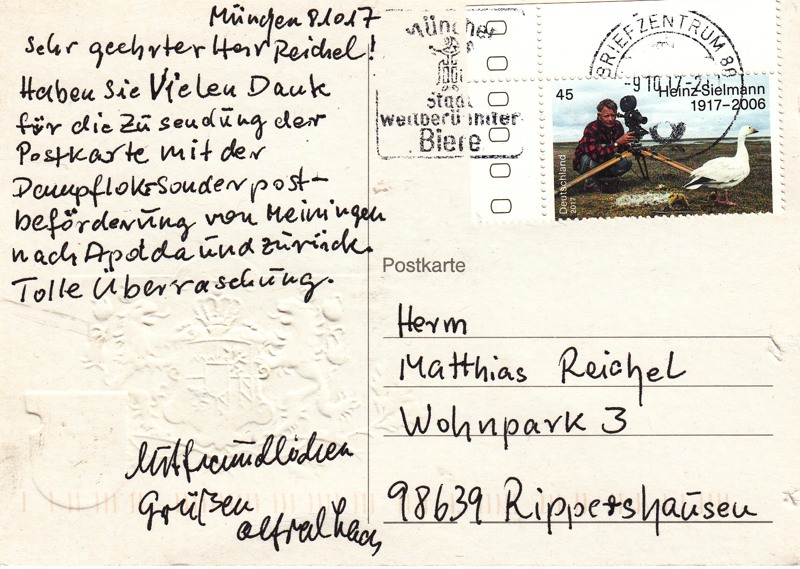 München 8.10.17
Sehr geehrter Herr Reichel!
Haben Sie Vielen Dank
für die Zusendung der
Postkarte mit der
Dampfloksonderpost-
beförderung von Meiningen
nach Apolda und zurück.
Tolle Überraschung.
Mit freundlichen
Grüßen
Alfred
München
Stadt
weltberühmter
Biere
BRIEFZENTRUM 80
-9.10.17-2
45
Heinz Sielmann
1917–2006
Deutschland
2017
Postkarte
Herrn
Matthias Reichel
Wohnpark 3
98639 Rippershausen